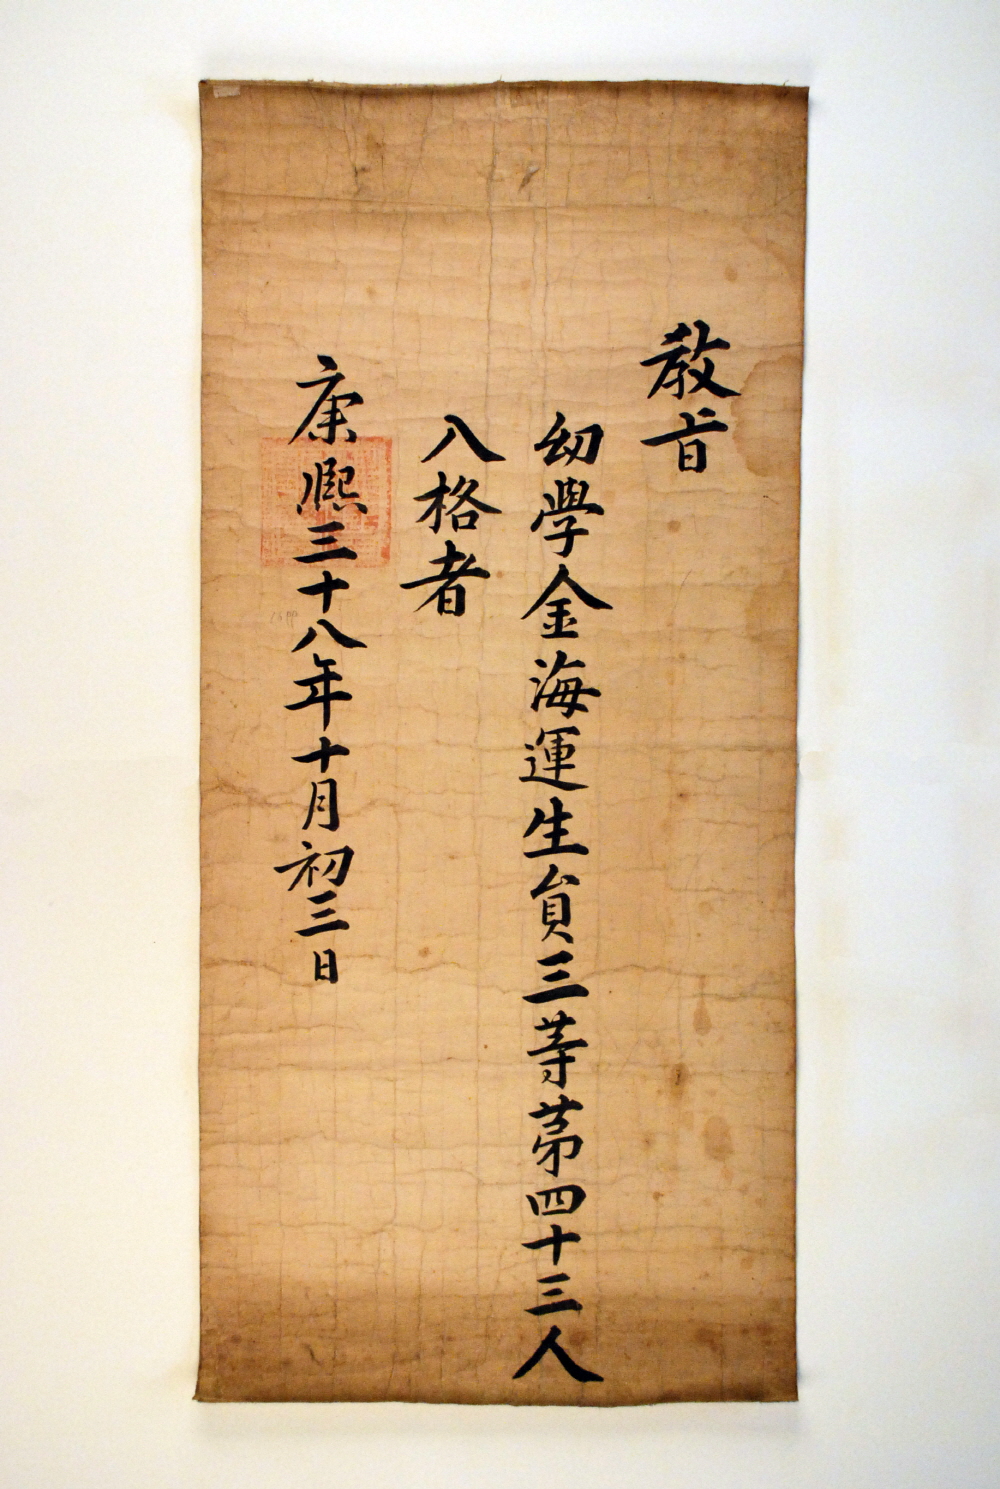 教旨
幼學金海運生員三等第四十三人
入格者
康熙三十八年十月初三日